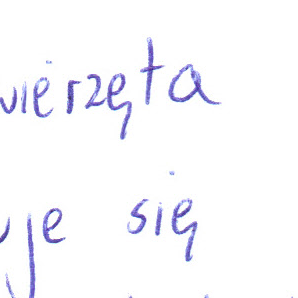 wierzęta
uje się